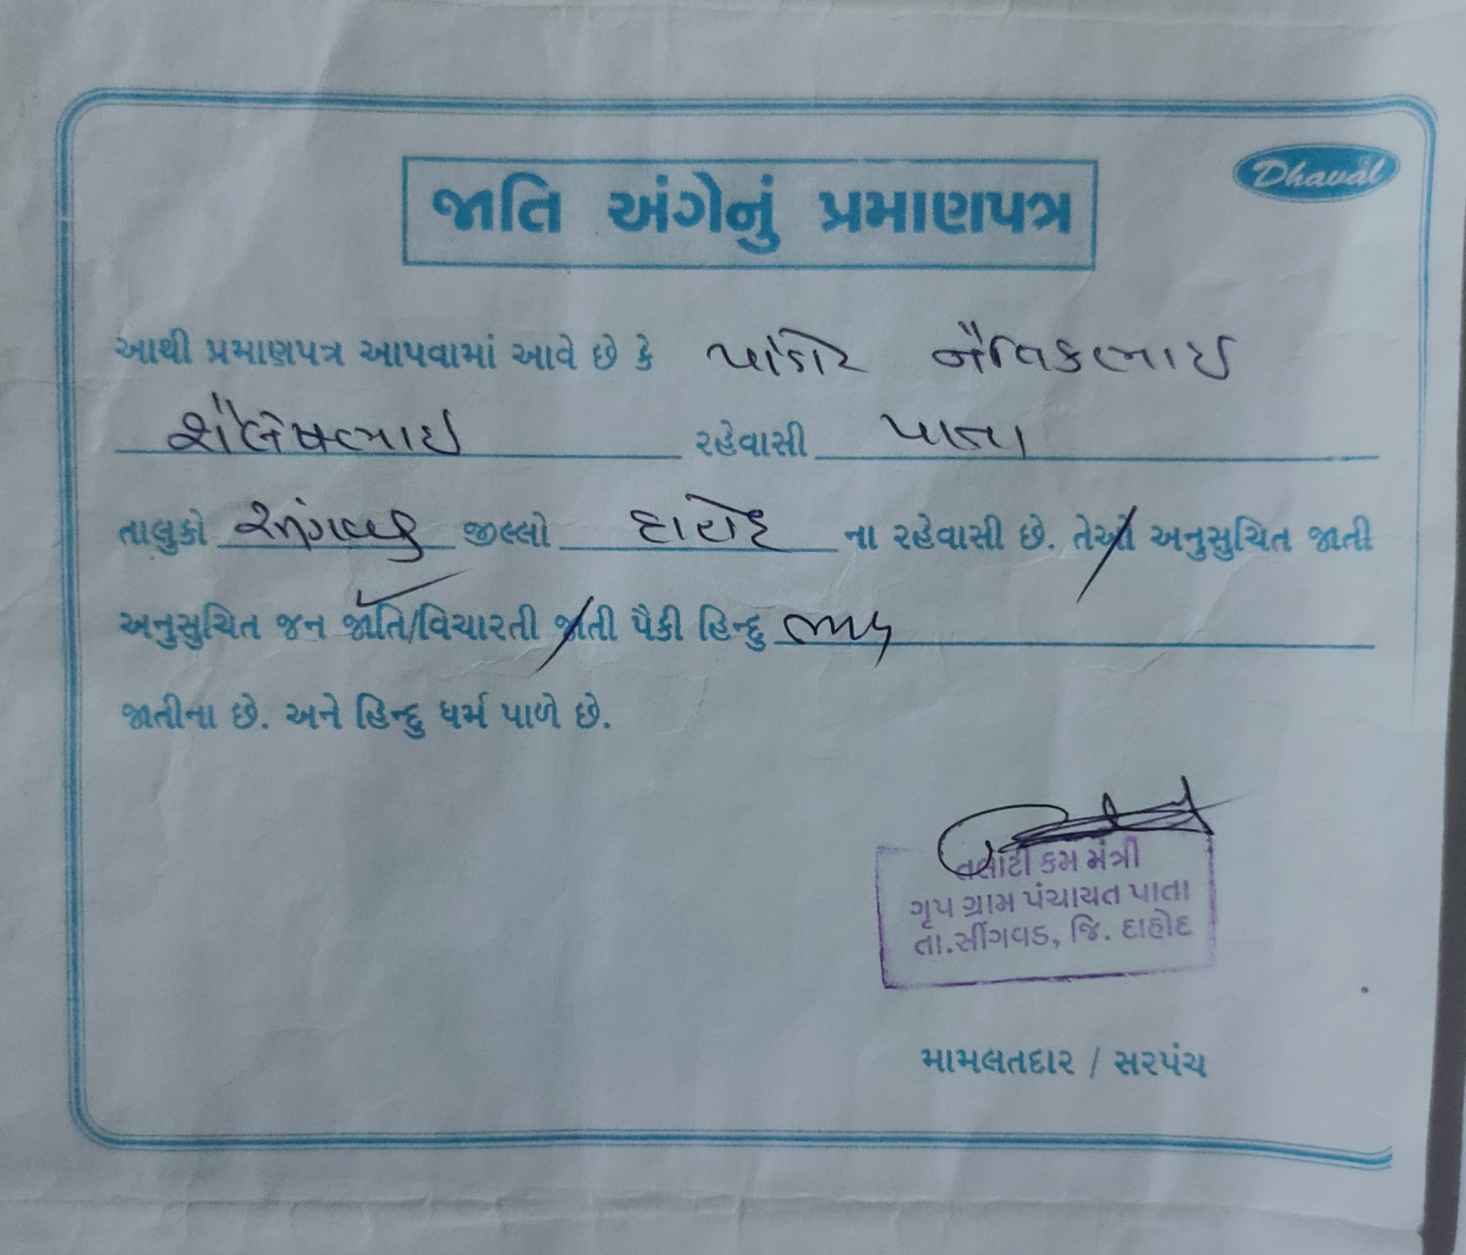 Dhaval
જાતિ અંગેનું પ્રમાણપત્ર
આથી પ્રમાણપત્ર આપવામાં આવે છે કે પાંડોર નૈતિકભાઈ
શૈલેષભાઈ રહેવાસી પાતા
તાલુકો સીંગવડ જીલ્લો દાહોદ ના રહેવાસી છે. તેઓ અનુસુચિત જાતી
અનુસુચિત જન જાતિ/વિચારતી જાતી પૈકી હિન્દુ
જાતીના છે. અને હિન્દુ ધર્મ પાળે છે.
તલાટી કમ મંત્રી
ગૃપ ગ્રામ પંચાયત પાતા
તા.સીંગવડ, જિ. દાહોદ
મામલતદાર / સરપંચ